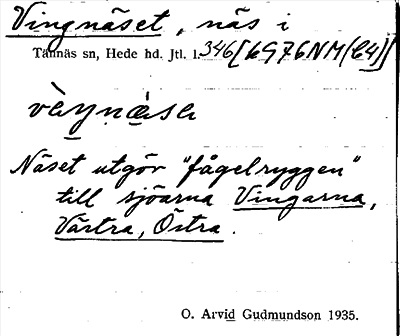 Vingnäset, näs i
Tännäs sn, Hede hd. Jtl. l. 346 [6G76NM(C4)]
vèŋnæ̀sɛ
Näset utgör "fågelryggen"
till sjöarna Vingarna,
Västra, Östra.
O. Arvid Gudmundson 1935.